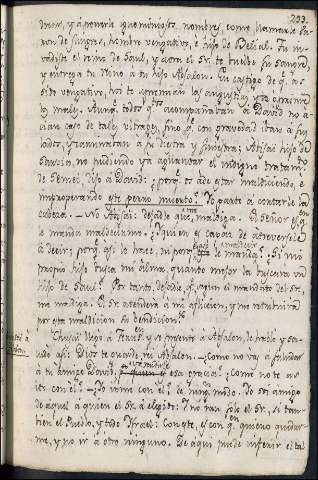 293.
drear, y á ponerle ignominiosos nombres, como llamarle Ba-
ron de sangres, hombre vengativo, é hijo de Belial. Tu in-
vadiste el reino de Saul, y aora el Sr. te buelbe tu sangre
y entrega tu Reno á tu hijo Absalon. En castigo de q. as
sido vengativo, hoy te oprimen las angustias, y te oprimen
los males. Aunq. todos q.tos acompañaban á David no a-
cian caso de tales ultrages, sino q. con gravedad iban á su
lado, y caminaban á su diestra y siniestra; Abisai hijo de
Sarvia, no pudiendo ya aguantar el indigno tratam.to
de Semei, dijo á David: ¿porq. te a de estar maldiciendo, é
improperando este perro muerto? Yo parto á cortarle la
cabeza. — No Abisai: dejadle que maldiga. El Señor es q.
le manda maldecirme. ¿Y quien es capaz de atreverse
á decir; porq. asi lo hace, ni porq. le manda? Si mi
propio hijo busca mi alma, quanto mejor la buscara un
hijo de Saul? Por tanto, dejadle q. segun el mandato del Sr.
me maldiga. El Sr. atenderá á mi afliccion, y me retribuirá
por esta maldicion su bendicion.
Chusai llegó á Jerus.n y se presentó á Absalon, le habló y sa-
ludó asi: Dios te guarde, rei Absalon. — ¿Como no vas á ayudar
á tu amigo David? esa gracia? ¿Como no te as
ido con el? — ¿Yo irme con el? de ningn. modo. Yo soi amigo
de aquel á quien el Sr. á elegido: y no tan solo el Sr. si tam-
bien el Pueblo, y todo Ysrael: Con este, es con q. quiero quedar-
me, y no ir á otro ninguno. De aqui puede inferir el ta-